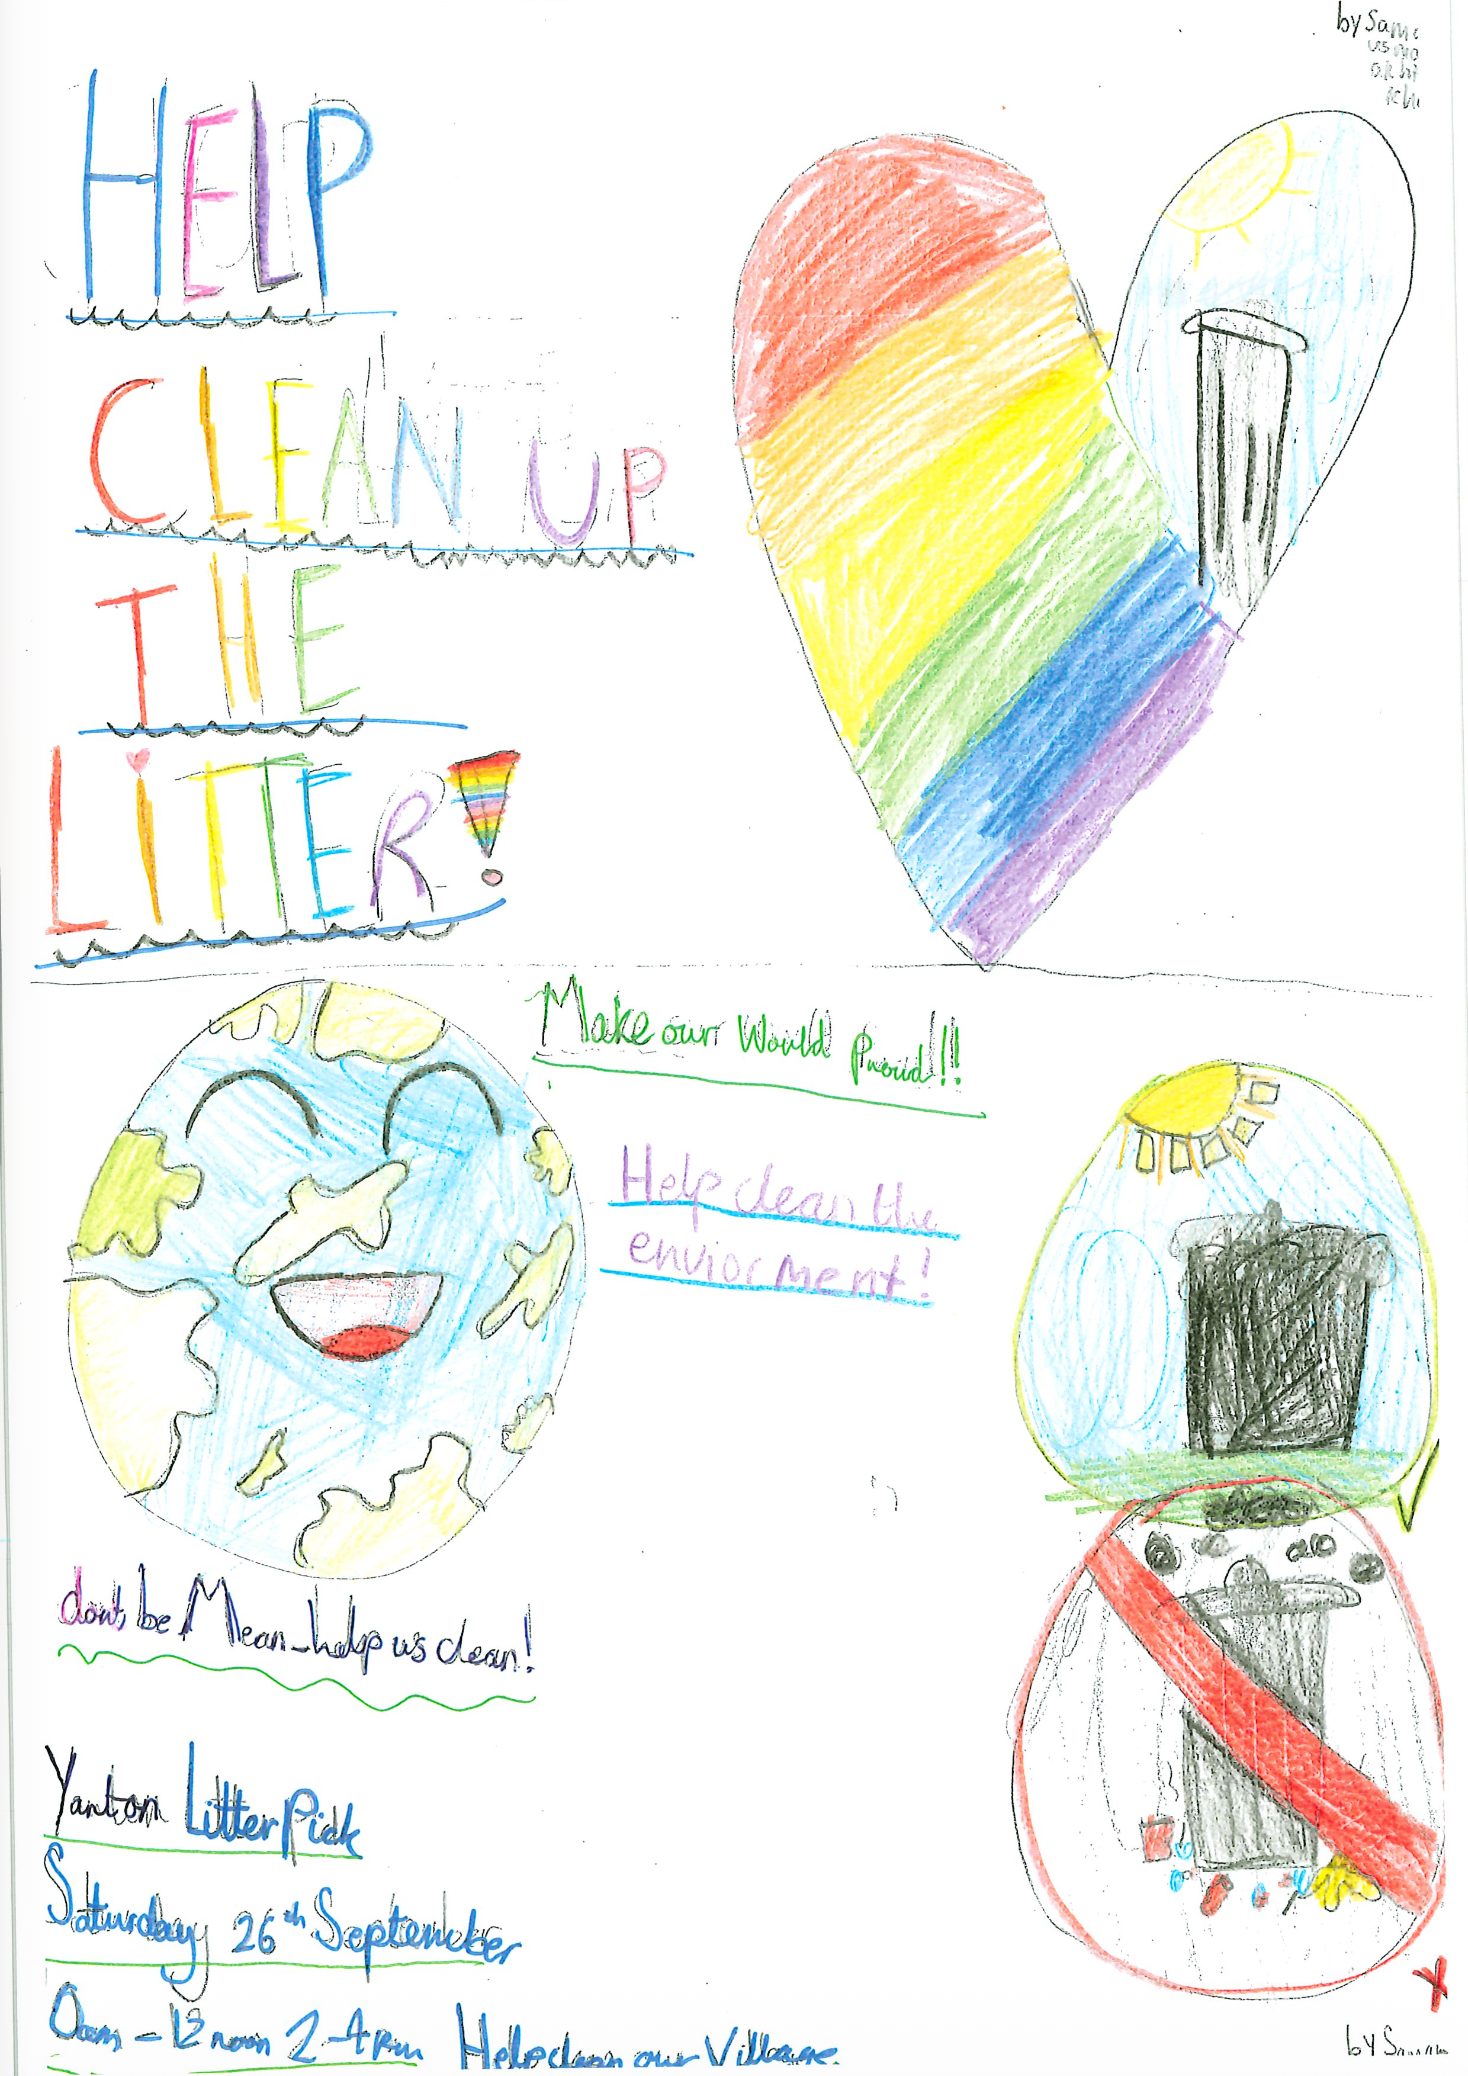 by Sam
HELP
CLEAN UP
THE
LiTTER!
Make our World Proud!!
Help clean the
enviorment!
dont be Mean-help us clean!
Yantom Litter Pick
Saturday 26th September
0am - 12 noon 2-4pm Help clean our Village.
by S